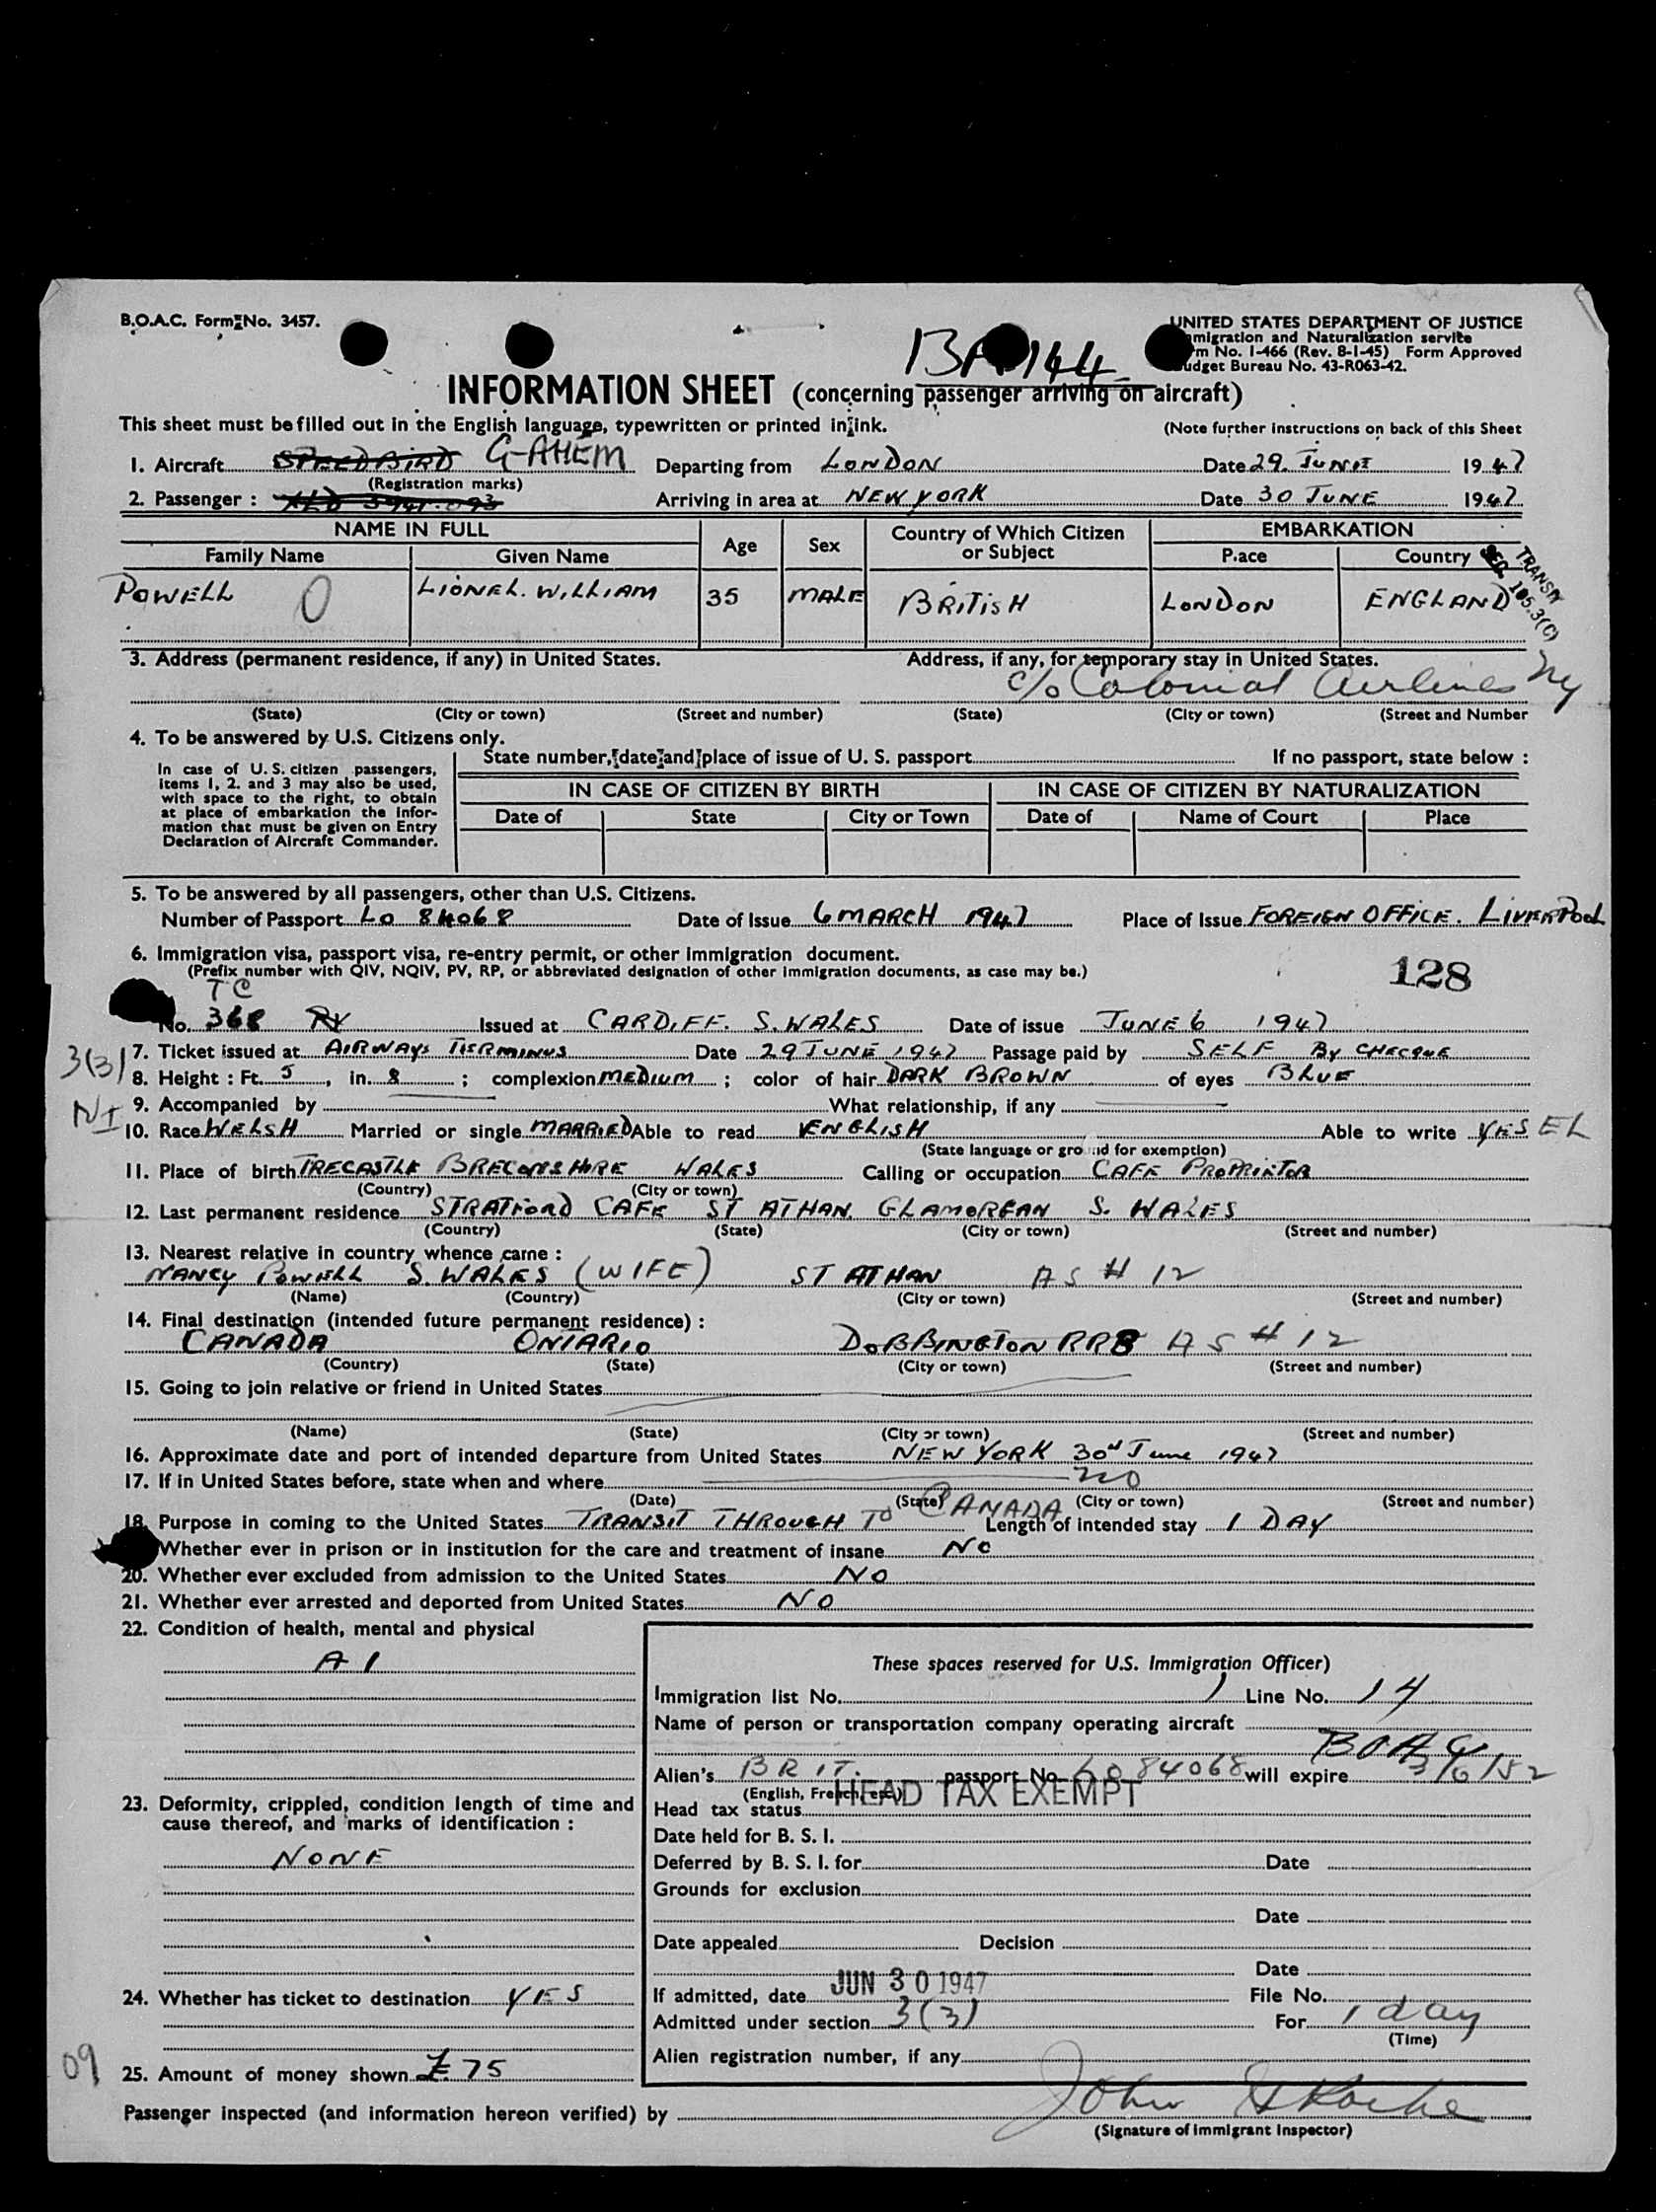 B.O.A.C. Form No. 3457.
UNITED STATES DEPARTMENT OF JUSTICE
migration and Naturalization service
m No. I-466 (Rev. 8-1-45) Form Approved
udget Bureau No. 43-R063-42.
INFORMATION SHEET (concerning passenger arriving on aircraft)
This sheet must be filled out in the English language, typewritten or printed in ink. (Note further instructions on back of this Sheet
1. Aircraft SPEEDBIRD G-AHEM Departing from LONDON Date 29. JUNE 1947
(Registration marks)
2. Passenger : Arriving in area at NEW YORK Date 30 JUNE 1947
NAME IN FULL Age Sex Country of Which Citizen or Subject EMBARKATION
Family Name Given Name P.ace Country
TRANSIT
SEC. 105.3(C)
POWELL LIONEL. WILLIAM 35 MALE BRITISH LONDON ENGLAND
3. Address (permanent residence, if any) in United States. Address, if any, for temporary stay in United States.
c/o Colonial Airlines NY
(State) (City or town) (Street and number) (State) (City or town) (Street and Number
4. To be answered by U.S. Citizens only.
State number, date and place of issue of U. S. passport If no passport, state below :
In case of U. S. citizen passengers,
items 1, 2. and 3 may also be used,
with space to the right, to obtain
at place of embarkation the infor-
mation that must be given on Entry
Declaration of Aircraft Commander.
IN CASE OF CITIZEN BY BIRTH IN CASE OF CITIZEN BY NATURALIZATION
Date of State City or Town Date of Name of Court Place
5. To be answered by all passengers, other than U.S. Citizens.
Number of Passport LO 84068 Date of Issue 6 MARCH 1947 Place of Issue FOREIGN OFFICE. LIVERPOOL
6. Immigration visa, passport visa, re-entry permit, or other immigration document.
(Prefix number with QIV, NQIV, PV, RP, or abbreviated designation of other immigration documents, as case may be.)
128
TC
No. 368 Issued at CARDIFF. S. WALES Date of issue JUNE 6 1947
3(3) 7. Ticket issued at AIRWAYS TERMINUS Date 29 JUNE 1947 Passage paid by SELF By CHECQUE
8. Height : Ft. 5, in. 8 ; complexion MEDIUM ; color of hair DARK BROWN of eyes BLUE
9. Accompanied by What relationship, if any
10. Race WELSH Married or single MARRIED Able to read ENGLISH Able to write YES EL
(State language or ground for exemption)
11. Place of birth TRECASTLE BRECONSHIRE WALES Calling or occupation CAFE PROPRIETOR
(Country) (City or town)
12. Last permanent residence STRATFORD CAFE ST ATHAN. GLAMORGAN S. WALES
(Country) (State) (City or town) (Street and number)
13. Nearest relative in country whence came :
NANCY POWELL S. WALES (WIFE) ST ATHAN AS # 12
(Name) (Country) (City or town) (Street and number)
14. Final destination (intended future permanent residence) :
CANADA ONTARIO DOBBINGTON RRB AS # 12
(Country) (State) (City or town) (Street and number)
15. Going to join relative or friend in United States
(Name) (State) (City or town) (Street and number)
16. Approximate date and port of intended departure from United States NEW YORK 30d June 1947
17. If in United States before, state when and where no
(Date) (State) (City or town) (Street and number)
18. Purpose in coming to the United States TRANSIT THROUGH TO CANADA Length of intended stay 1 DAY
Whether ever in prison or in institution for the care and treatment of insane No
20. Whether ever excluded from admission to the United States No
21. Whether ever arrested and deported from United States No
22. Condition of health, mental and physical
A 1
These spaces reserved for U.S. Immigration Officer)
Immigration list No. 1 Line No. 14
Name of person or transportation company operating aircraft
BOAC
Alien's BRIT. passport No. LO 84068 will expire 3/6/52
(English, French, etc.)
Head tax status HEAD TAX EXEMPT
23. Deformity, crippled, condition length of time and
cause thereof, and marks of identification :
NONE
Date held for B. S. I.
Deferred by B. S. I. for Date
Grounds for exclusion
Date
Date appealed Decision
Date
24. Whether has ticket to destination YES
If admitted, date JUN 30 1947 File No.
Admitted under section 3(3) For 1 day
(Time)
Alien registration number, if any
09
25. Amount of money shown £ 75
Passenger inspected (and information hereon verified) by John
(Signature of Immigrant Inspector)